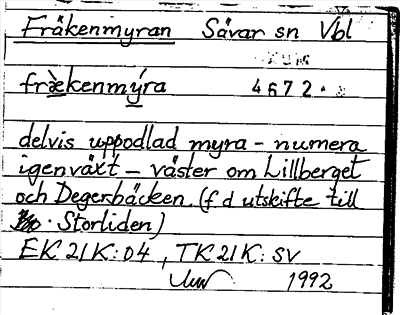 Fräkenmyran Sävar sn Vbl
fræ̀kenmýra 4672.
delvis uppodlad myra - numera
igenväxt - väster om Lillberget
och Degerbäcken. (f d utskifte till
Storliden)
EK 21K:04, TK 21K: SV
1992